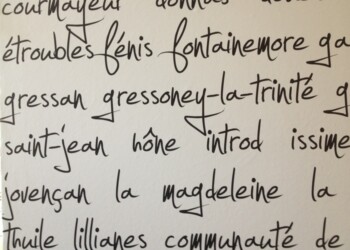 courmayeur donnas
étroubles fénis fontainemore ga
gressan gressoney-la-trinité g
saint-jean hône introd issime
jovençan la magdeleine la
thuile lillianes communauté de